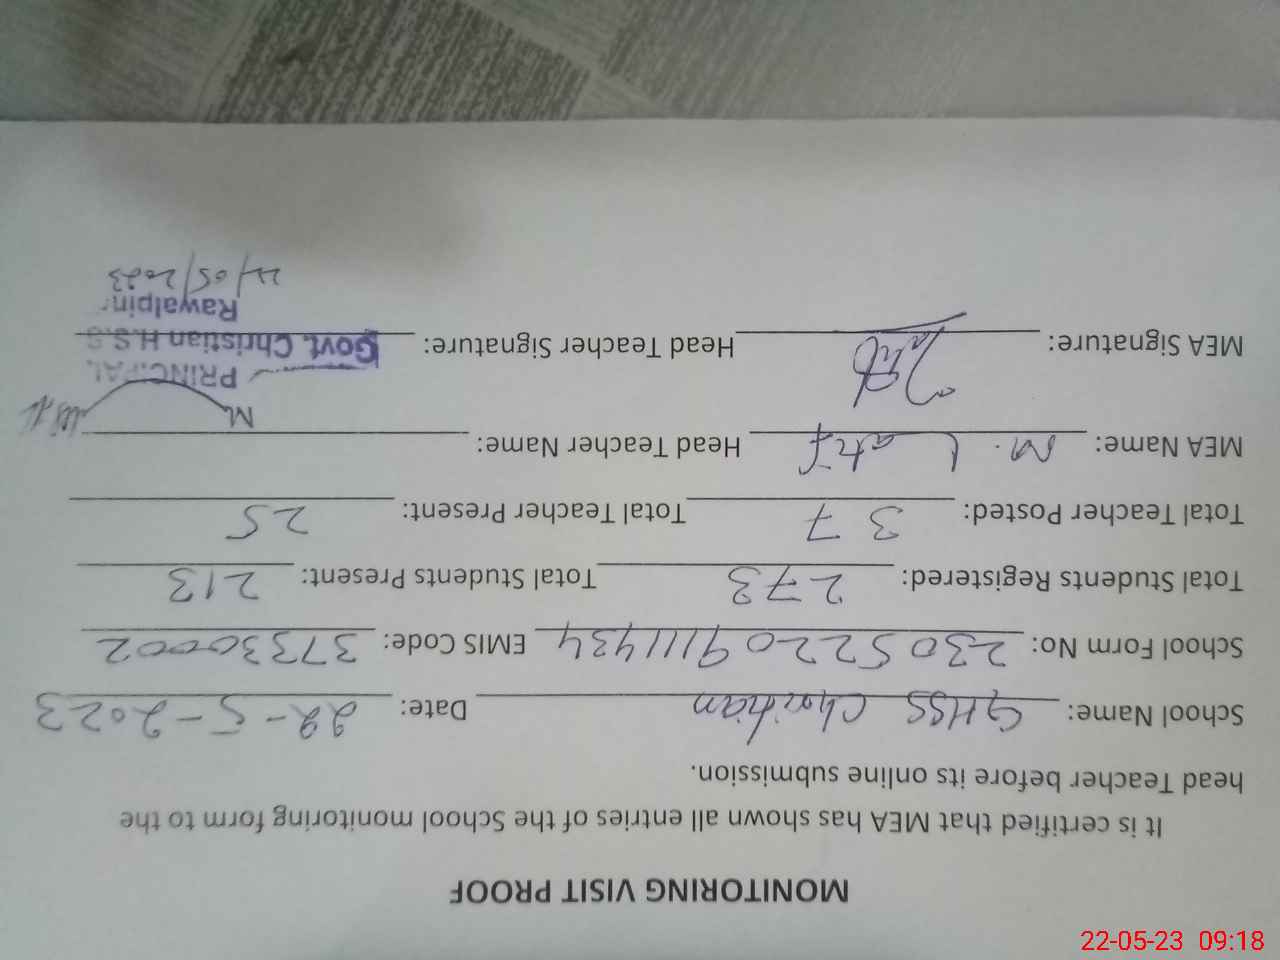 MONITORING VISIT PROOF
It is certified that MEA has shown all entries of the School monitoring form to the
head Teacher before its online submission.
School Name: GHSS Christian Date: 22-5-2023
School Form No: 23052209111434 EMIS Code: 37330002
Total Students Registered: 273 Total Students Present: 213
Total Teacher Posted: 37 Total Teacher Present: 25
MEA Name: M. Latif Head Teacher Name: M
MEA Signature: Head Teacher Signature:
PRINCIPAL
Govt. Christian H.S.S
Rawalpin
22/05/2023
22-05-23 09:18